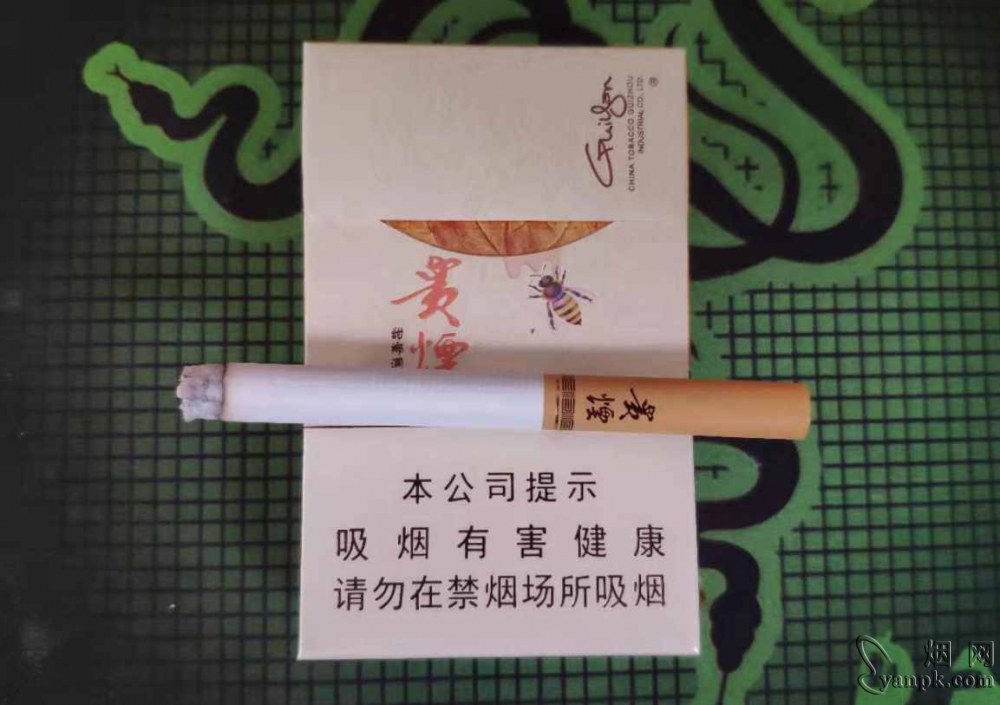 Guiyan
CHINA TOBACCO GUIZHOU
INDUSTRIAL CO., LTD.
®
貴煙
貴煙
本公司提示
吸烟有害健康
请勿在禁烟场所吸烟
烟网
yanpk.com